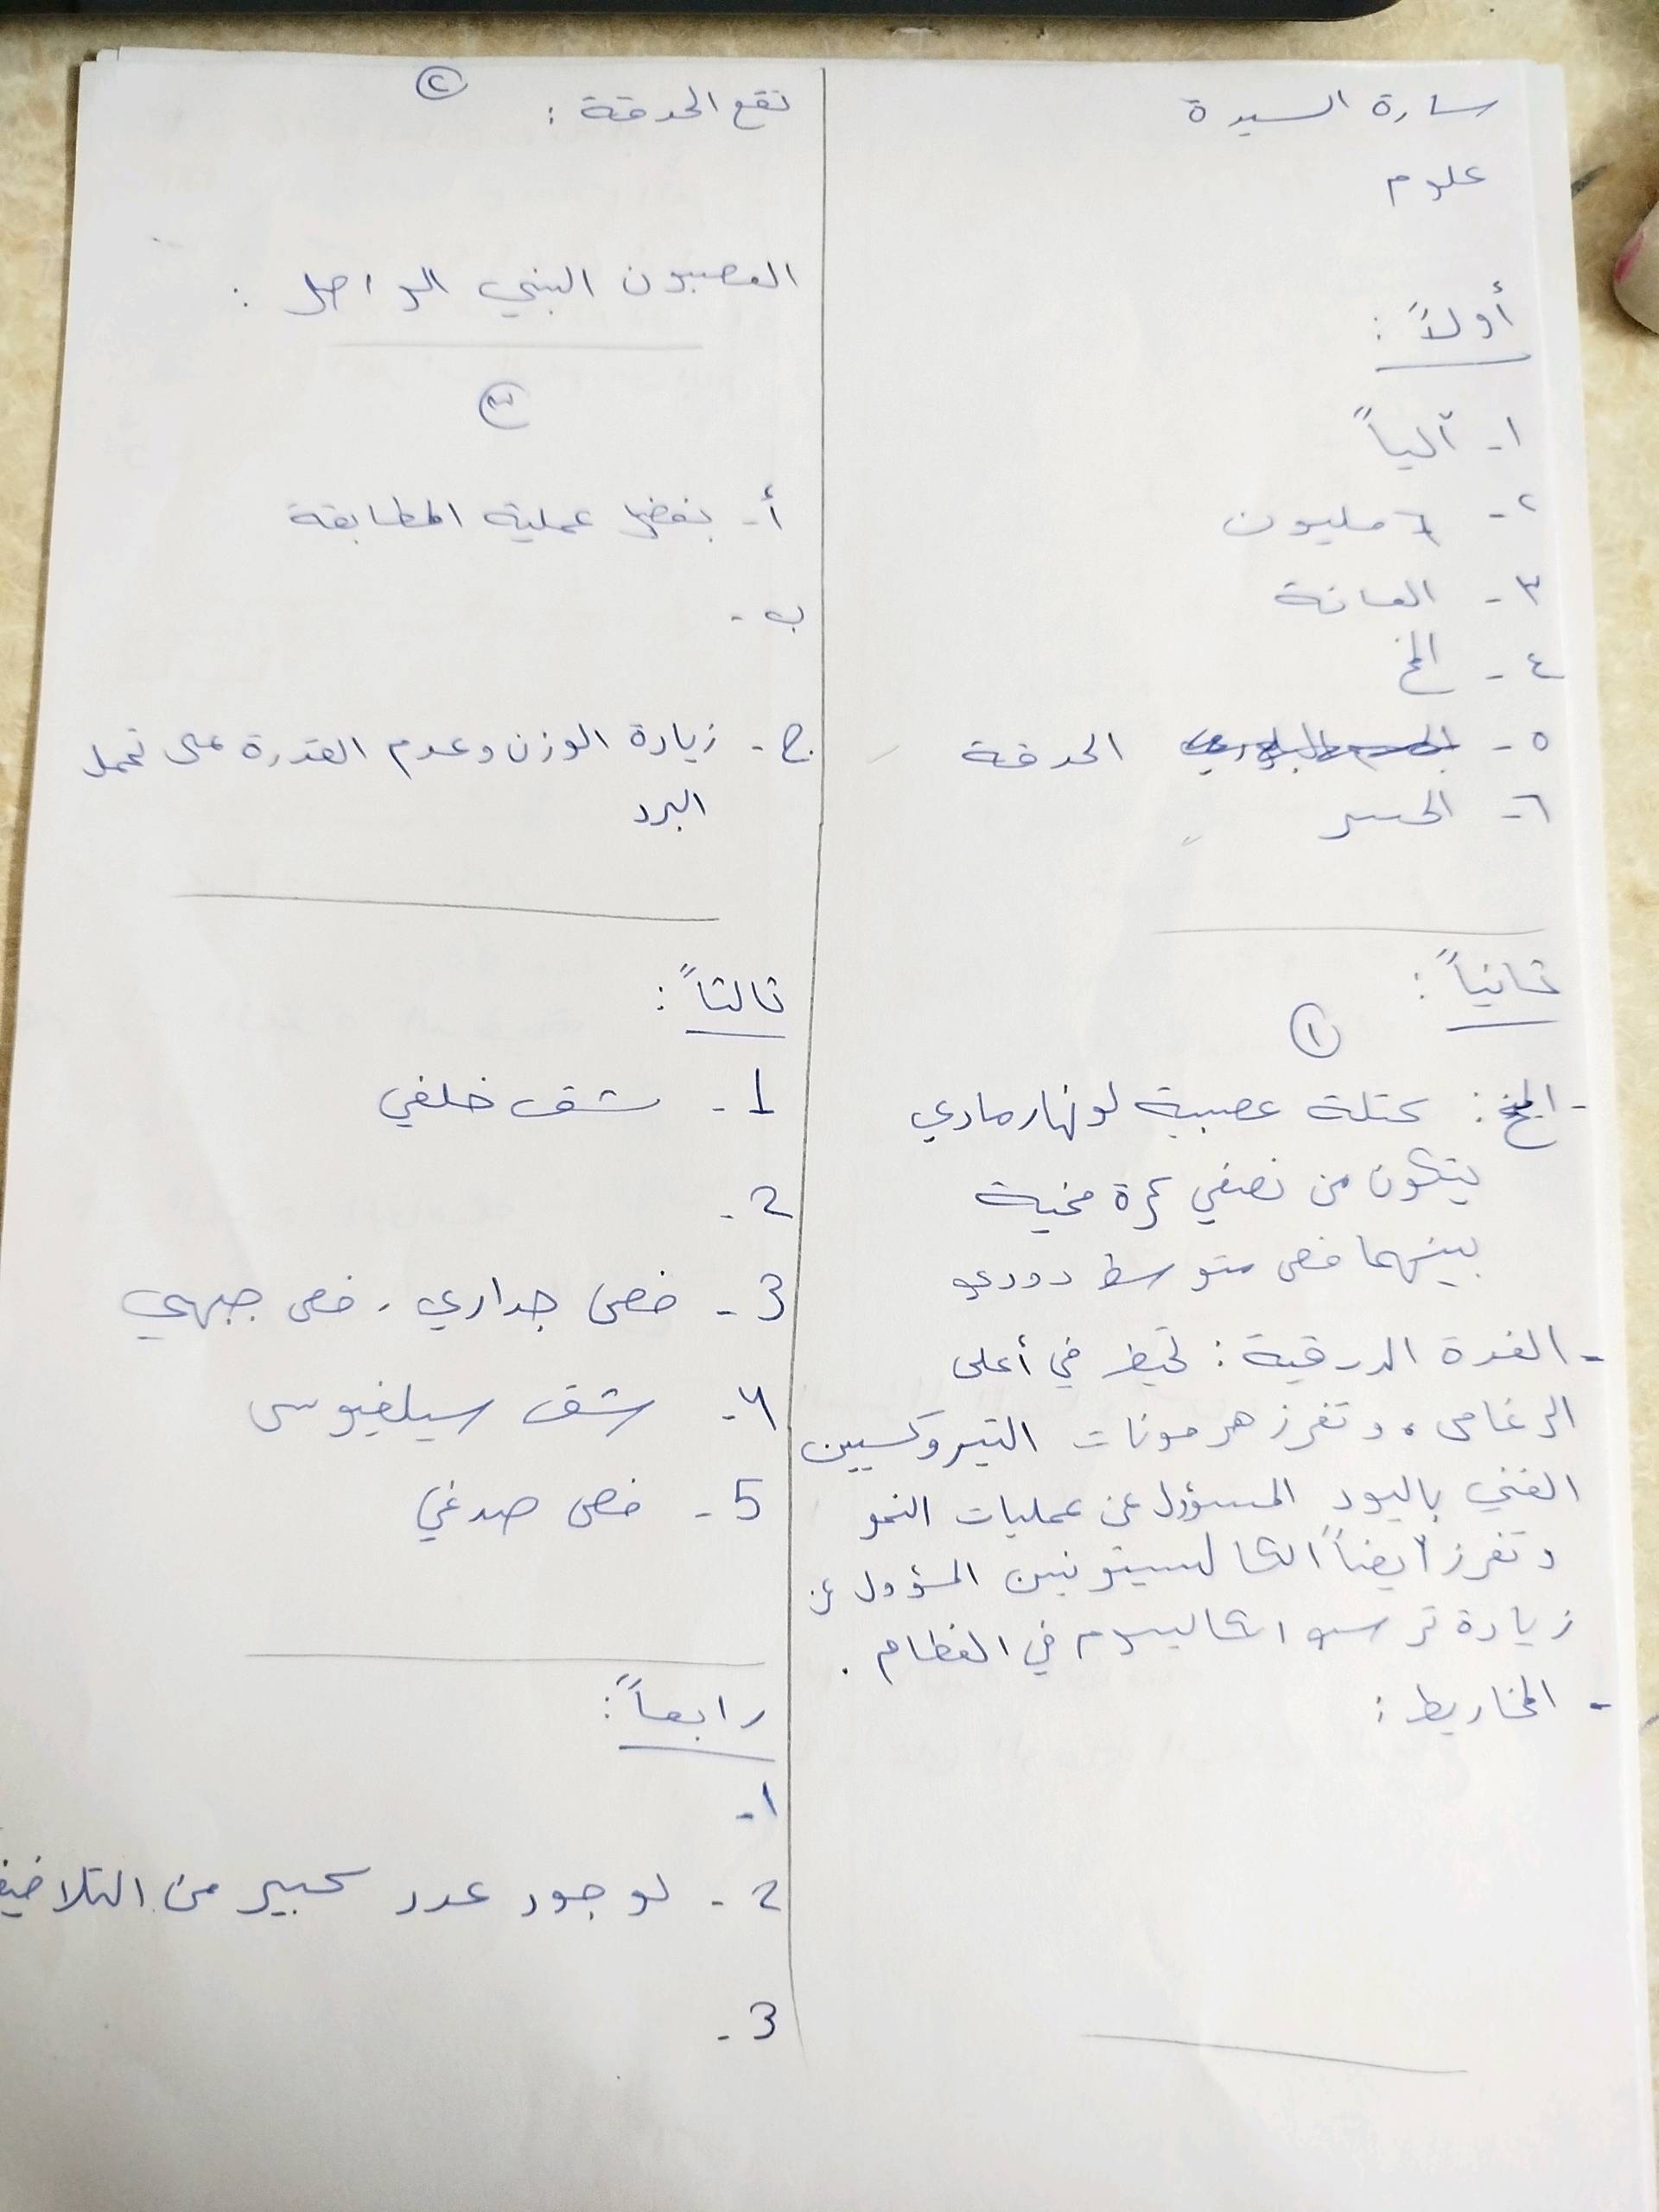 سارة السيدة
علوم
أولاً :
١- آلياً
٢- ٦ مليون
٣- العانة
٤- المخ
٥- الحدقة
٦- الحسر
ثانياً :
١
- المخ : كتلة عصبية لونها رمادي
يتكون من نصفي كرة مخية
بينهما فص متوسط دودي
- الغدة الدرقية : تحيط في أعلى
الرغامى ، وتفرز هرمونات التيروكسين
الغني باليود المسؤول عن عمليات النمو
وتفرز أيضاً الكالسيتونين المسؤول عن
زيادة ترسب الكاليسوم في العظام .
- المخاريط :
٢
تقع الحدقة :
العصبون البيني الواصل :
٣
أ- بفضل عملية المطابقة
ب -
ج- زيادة الوزن وعدم القدرة على تحمل
البرد
ثالثاً :
1- شق خلفي
2-
3- فص جداري ، فص جبهي
4- شق سيلفيوس
5- فص صدغي
رابعاً :
1-
2- لوجود عدد كبير من التلافيف
3-